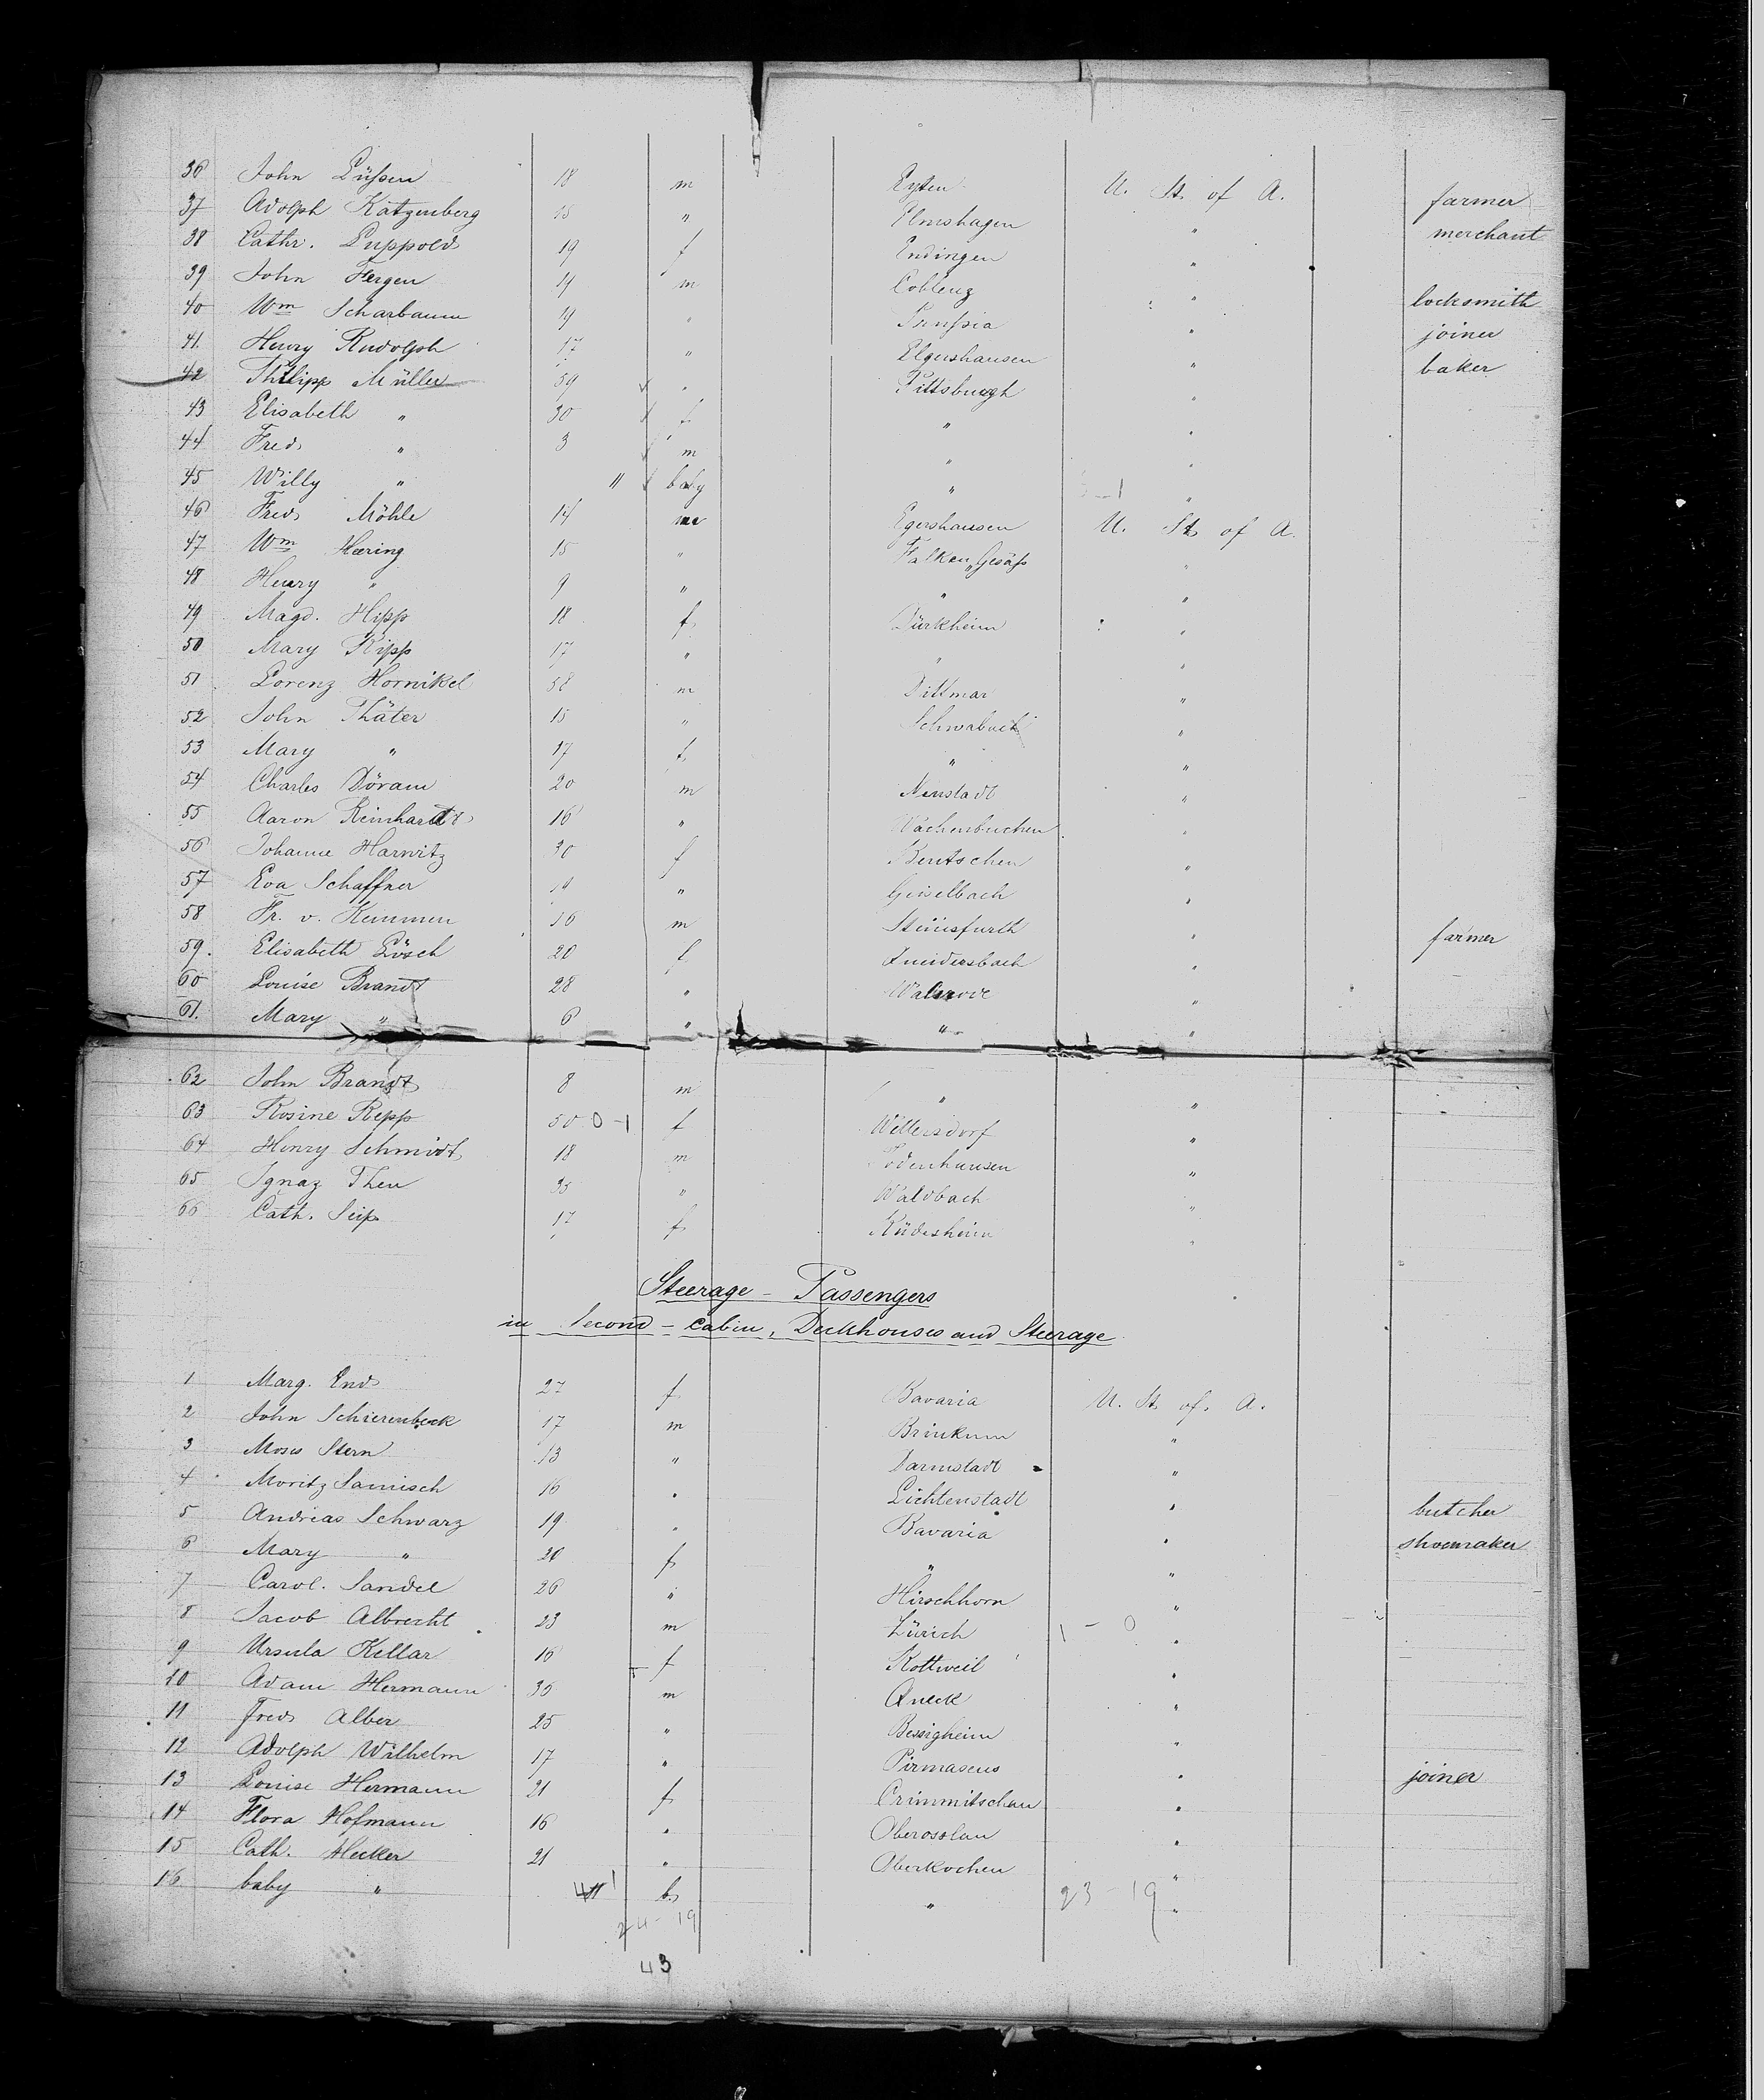 36 John Lüssen 18 m Eyten U. St. of A. farmer
37 Adolph Katzenberg 15 " Elmshagen " merchant
38 Cathr. Luppold 19 f Endingen "
39 John Fergen 19 m Coblenz " locksmith
40 Wm Scharbaum 19 " Prussia " joiner
41. Henry Rudolph 17 " Elgershausen " baker
42 Philipp Müller 59 " Pittsburgh "
43 Elisabeth " 30 f " "
44 Fred " 3 m " "
45 Willy " " baby " "
46 Fred Möhle 14 m Egershausen U. St. of A.
47 Wm Haring 15 " Falken Gesäss "
48 Henry " 9 " " "
49 Magd. Hipp 18 f Dürkheim "
50 Mary Kipp 17 " " "
51 Lorenz Hornikel 58 m Dittmar "
52 John Thäter 15 " Schwabach "
53 Mary " 17 f " "
54 Charles Döram 20 m Neustadt "
55 Aaron Reinhardt 16 " Wachenbuchen "
56 Johanne Harwitz 30 f Bentschen "
57 Eva Schaffner " Geiselbach "
58 Fr. v. Kemmen 16 m Steinsfurth " farmer
59. Elisabeth Lösch 20 f "
60 Louise Brandt 28 " Walsrode "
61. Mary " 6 " " "
62 John Brandt 8 m " "
63 Rosine Repp 50 0-1 f Wittersdorf "
64 Henry Schmidt 18 m "
65 Ignaz Theu 35 " Waldbach "
66 Cath. Seip 17 f Rüdesheim "
Steerage - Passengers
in Second - Cabin, Deckhouses and Steerage
1 Marg. End 27 f Bavaria U. St. of. A.
2 John Schierenbeck 17 m Brinkum "
3 Moses Stern 13 " Darmstadt "
4 Moritz Samisch 16 " Lichtenstadt " butcher
5 Andreas Schwarz 19 " Bavaria " shoemaker
6 Mary " 20 f " "
7 Carol. Sandel 26 " Hirschhorn "
8 Jacob Albrecht 23 m Zürich 1 - 0 "
9 Ursula Kellar 16 f Rottweil "
10 Adam Hermann 35 m Queck "
11 Fred Alber 25 " Bessigheim "
12 Adolph Wilhelm 17 " Pirmasens " joiner
13 Louise Hermann 21 f Crimmitschau "
14 Flora Hofmann 16 " Oberosslau "
15 Cath. Hecker 21 " Oberkochen "
16 baby " b. " 23 - 19 "
24 - 19
43